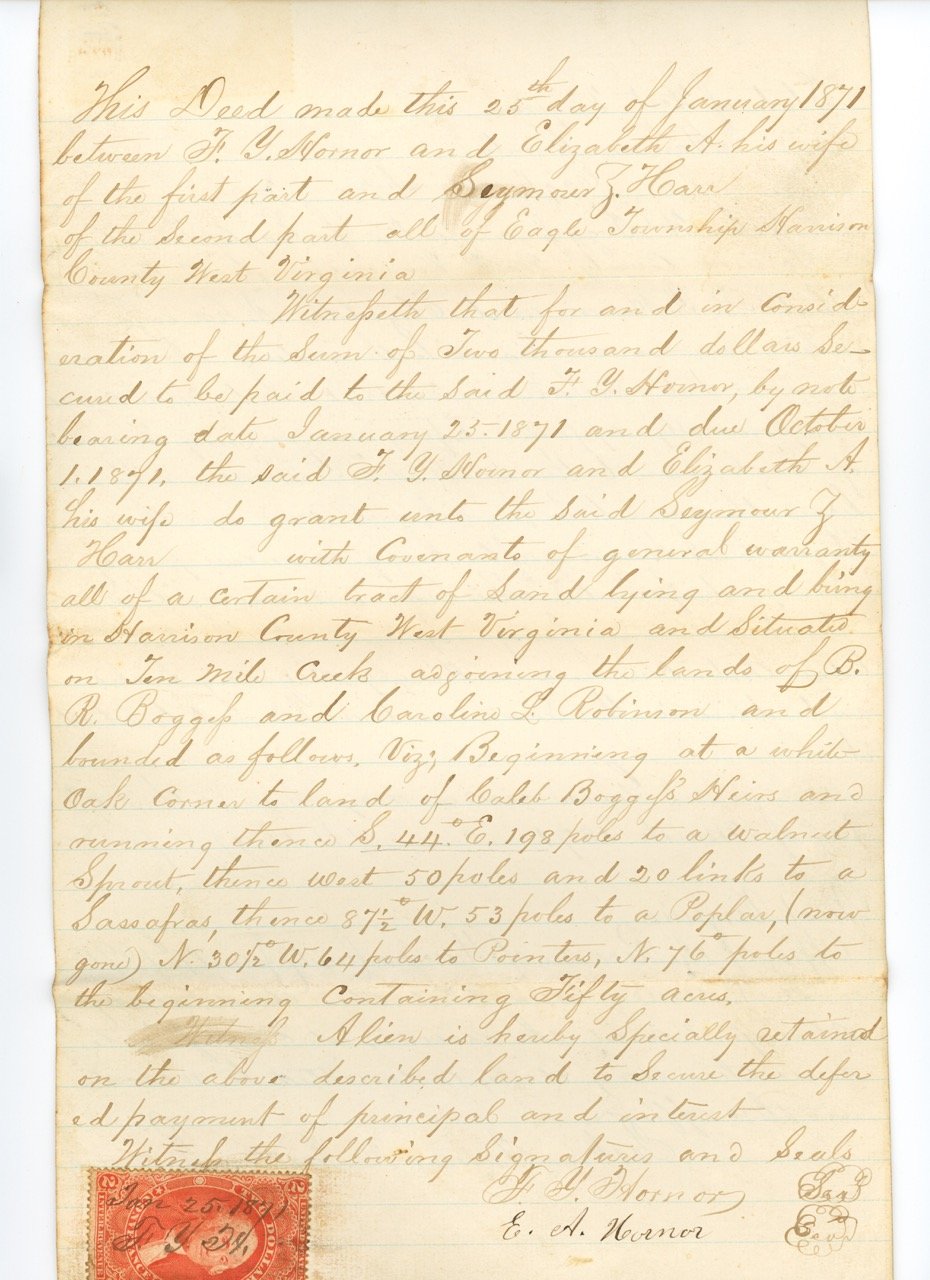 This Deed made this 25th day of January 1871
between F. Y. Hornor and Elizabeth A. his wife
of the first part and Seymour Z. Harr
of the Second part all of Eagle Township Harrison
County West Virginia
Witnesseth that for and in Consid-
eration of the Sum of Two thousand dollars Se-
cured to be paid to the Said F. Y. Hornor, by note
bearing date January 25. 1871 and due October
1. 1871. the said F. Y. Hornor and Elizabeth A.
his wife do grant unto the Said Seymour Z
Harr with Covenants of general warranty
all of a certain tract of Land lying and being
in Harrison County West Virginia and Situated
on Ten Mile Creek adjoining the lands of B.
R. Boggess and Caroline L. Robinson and
bounded as follows, Viz; Beginning at a white
Oak Corner to land of Caleb Boggess's Heirs and
running thence S. 44.° E. 198 poles to a walnut
Sprout, thence West 50 poles and 20 links to a
Sassafras, thence 87½° W. 53 poles to a Poplar, (now
gone) N. 30½° W. 64 poles to Pointers, N. 76° poles to
the beginning Containing Fifty acres.
Witness A lien is hereby Specially retained
on the above described land to Secure the defer
ed payment of principal and interest
Witness the following Signatures and Seals
F. Y. Hornor Seal
E. A. Hornor Seal
Jan 25. 1871
F Y H.